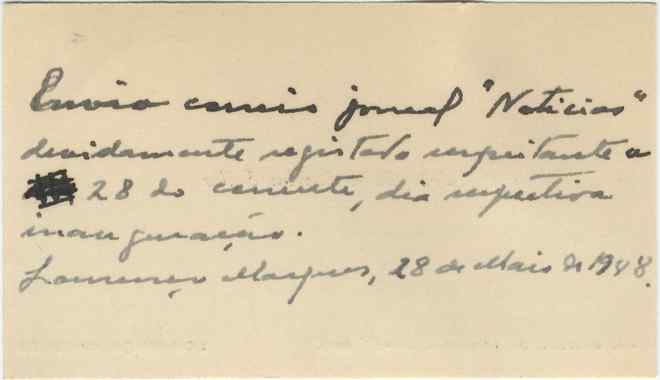 Envio correio jornal "Noticias"
devidamente registado respeitante a
28 do corrente, dia respectiva
inauguração.
Lourenço Marques, 28 de Maio de 1948.